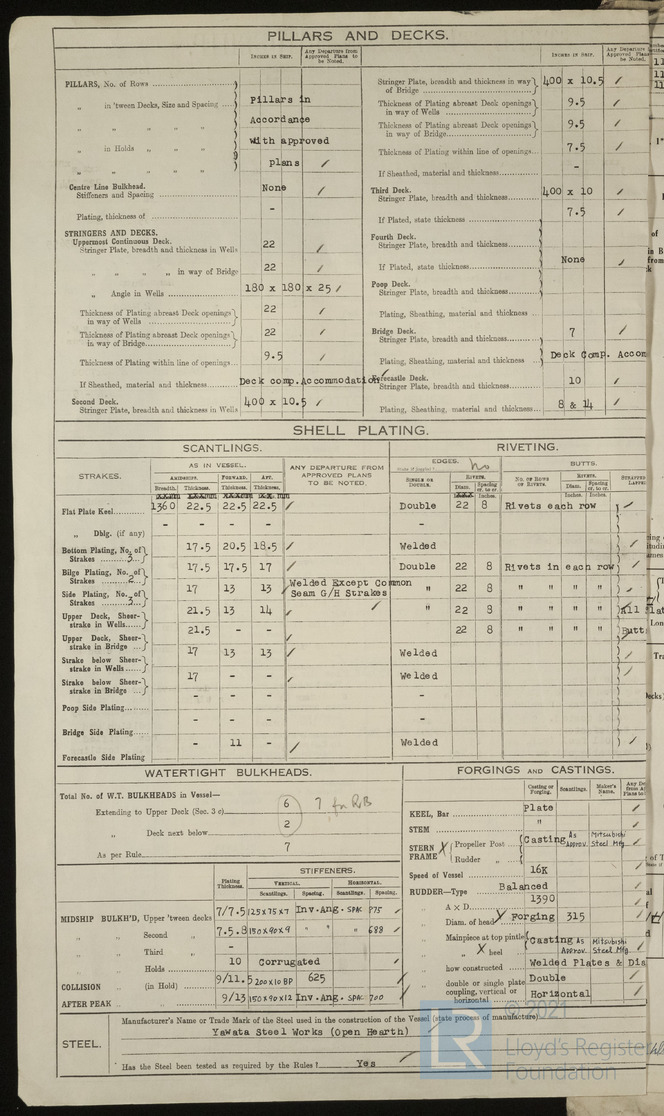 PILLARS AND DECKS.
INCHES IN SHIP.
Any Departure from Approved Plans to be Noted.
PILLARS, No. of Rows
„ in 'tween Decks, Size and Spacing
Pillars in
„ „ „ „ „
Accordance
„ in Holds „ „
with approved
„ „ „ „ „
plans /
Centre Line Bulkhead.
Stiffeners and Spacing
None /
Plating, thickness of
-
STRINGERS AND DECKS.
Uppermost Continuous Deck.
Stringer Plate, breadth and thickness in Wells
22 /
„ „ „ „ in way of Bridge
22 /
„ Angle in Wells
180 x 180 x 25 /
Thickness of Plating abreast Deck openings in way of Wells
22 /
Thickness of Plating abreast Deck openings in way of Bridge
22 /
Thickness of Plating within line of openings
9.5 /
If Sheathed, material and thickness
Deck comp. Accommodation
Second Deck.
Stringer Plate, breadth and thickness in Wells
400 x 10.5 /
INCHES IN SHIP.
Stringer Plate, breadth and thickness in way of Bridge
400 x 10.5 /
Thickness of Plating abreast Deck openings in way of Wells
9.5 /
Thickness of Plating abreast Deck openings in way of Bridge
9.5 /
Thickness of Plating within line of openings
7.5 /
If Sheathed, material and thickness
-
Third Deck.
Stringer Plate, breadth and thickness
400 x 10 /
If Plated, state thickness
7.5 /
Fourth Deck.
Stringer Plate, breadth and thickness
If Plated, state thickness
None /
Poop Deck.
Stringer Plate, breadth and thickness
Plating, Sheathing, material and thickness
Bridge Deck.
Stringer Plate, breadth and thickness
7 /
Plating, Sheathing, material and thickness
Deck Comp. Accom
Forecastle Deck.
Stringer Plate, breadth and thickness
10 /
Plating, Sheathing, material and thickness
8 & 14 /
SHELL PLATING.
SCANTLINGS.
RIVETING.
STRAKES.
AS IN VESSEL.
AMIDSHIPS. FORWARD. AFT.
Breadth. Thickness. Thickness. Thickness.
ANY DEPARTURE FROM APPROVED PLANS TO BE NOTED.
EDGES. No
SINGLE OR DOUBLE.
RIVETS.
Diam. Spacing cr. to cr.
BUTTS.
No. OF ROWS OF RIVETS.
RIVETS.
Diam. Spacing cr. to cr.
Inches. Inches. Inches.
Flat Plate Keel
1360 22.5 22.5 22.5 / Double 22 8 Rivets each row /
„ Dblg. (if any)
- - - - -
Bottom Plating, No. of Strakes 3
17.5 20.5 18.5 / Welded /
Bilge Plating, No. of Strakes 2
17.5 17.5 17 / Double 22 8 Rivets in each row /
Side Plating, No. of Strakes 3
17 13 13 Welded Except Common Seam G/H Strakes " 22 8 " " " "
Upper Deck, Sheerstrake in Wells
21.5 13 14 / " 22 8 " " " " All
Upper Deck, Sheerstrake in Bridge
21.5 - - / 22 8 " " " " Butts
Strake below Sheerstrake in Wells
17 13 13 / Welded /
Strake below Sheerstrake in Bridge
17 - - / Welded /
Poop Side Plating
- - - -
Bridge Side Plating
- - - -
Forecastle Side Plating
- 11 - / Welded /
WATERTIGHT BULKHEADS.
Total No. of W.T. BULKHEADS in Vessel—
Extending to Upper Deck (Sec. 3 c)
6 7 for R/B
„ Deck next below
2
As per Rule
7
Plating Thickness.
STIFFENERS.
VERTICAL. HORIZONTAL.
Scantlings. Spacing. Scantlings. Spacing.
MIDSHIP BULKH'D, Upper 'tween decks
7/7.5 125x75x7 Inv. Ang. SPAC 775 /
„ „ Second „
7.5.8 150x90x9 " " " 688 /
„ „ Third „
-
„ „ Holds
10 Corrugated
COLLISION „ (in Hold)
9/11.5 200x10 BP 625
AFTER PEAK „ „
9/13 150x90x12 Inv. Ang. SPAC 700 /
FORGINGS AND CASTINGS.
Casting or Forging. Scantlings. Maker's Name.
KEEL, Bar
Plate
STEM
"
STERN FRAME { Propeller Post
Rudder „
Casting As Approv. Mitsubishi Steel Mfg.
Speed of Vessel
16K
RUDDER—Type
Balanced
„ A x D
1390
„ Diam. of head
Forging 315
„ Mainpiece at top pintle
„ „ heel
Casting As Approv. Mitsubishi Steel Mfg.
„ how constructed
Welded Plates & Dia
„ double or single plate
Double
„ coupling, vertical or horizontal
Horizontal
STEEL.
Manufacturer's Name or Trade Mark of the Steel used in the construction of the Vessel (state process of manufacture)
Yawata Steel Works (Open Hearth)
Has the Steel been tested as required by the Rules?
Yes
© 2021
LR
Lloyd's Register
Foundation